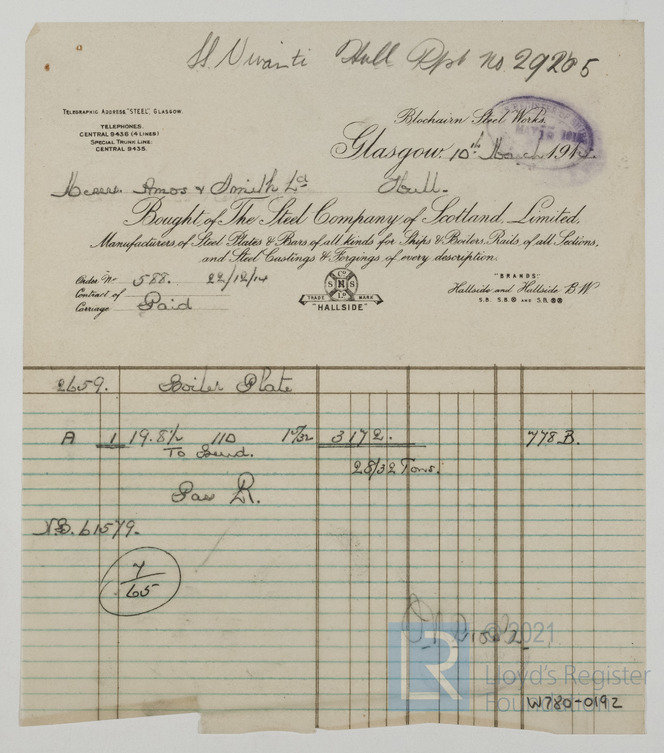 Hull Rpt no 29205
TELEGRAPHIC ADDRESS, "STEEL", GLASGOW.
TELEPHONES.
CENTRAL 9436 (4 LINES)
SPECIAL TRUNK LINE:
CENTRAL 9435.
Blochairn Steel Works,
Glasgow, 10th March 191
Messrs. Amos & Smith Ld Hull.
Bought of The Steel Company of Scotland, Limited,
Manufacturers of Steel Plates & Bars of all kinds for Ships & Boilers, Rails of all Sections,
and Steel Castings & Forgings of every description.
Order No 588. 22/12/14
Contract of
Carriage Paid
S Co N S LD
TRADE MARK
"HALLSIDE"
"BRANDS"
Hallside and Hallside B.W
S.B. S.B. AND S.B.
2659. Boiler Plate
A 1 19.8½ 110 1 5/32 3172. 778 B.
To Send.
28/32 Tons.
N.B. 61579.
7/65
© 2021
LR
Lloyd's Register
Foundation
W780-0192